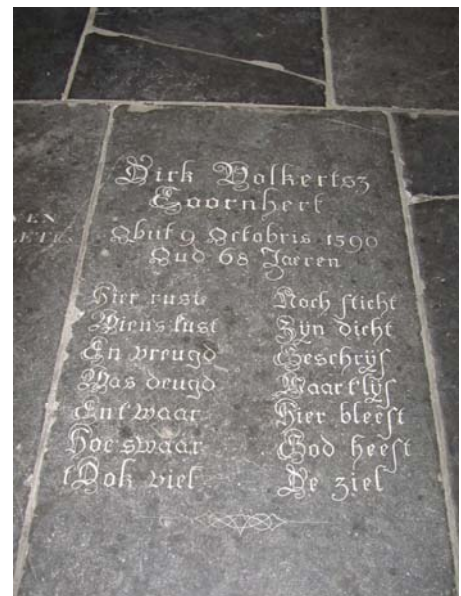 Dirk Volkertsz
Coornhert
Obiit 9 Octobris 1590
Oud 68 Jaeren
Hier rust
Wiens lust
En vreugd
Was deugd
En t waar
Hoe swaar
t Ook viel
Noch sticht
Zyn dicht
Geschryf
Maar t lyf
Hier bleeft
God heeft
De ziel